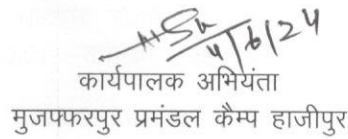 4/6/24
कार्यपालक अभियंता
मुजफ्फरपुर प्रमंडल कैम्प हाजीपुर